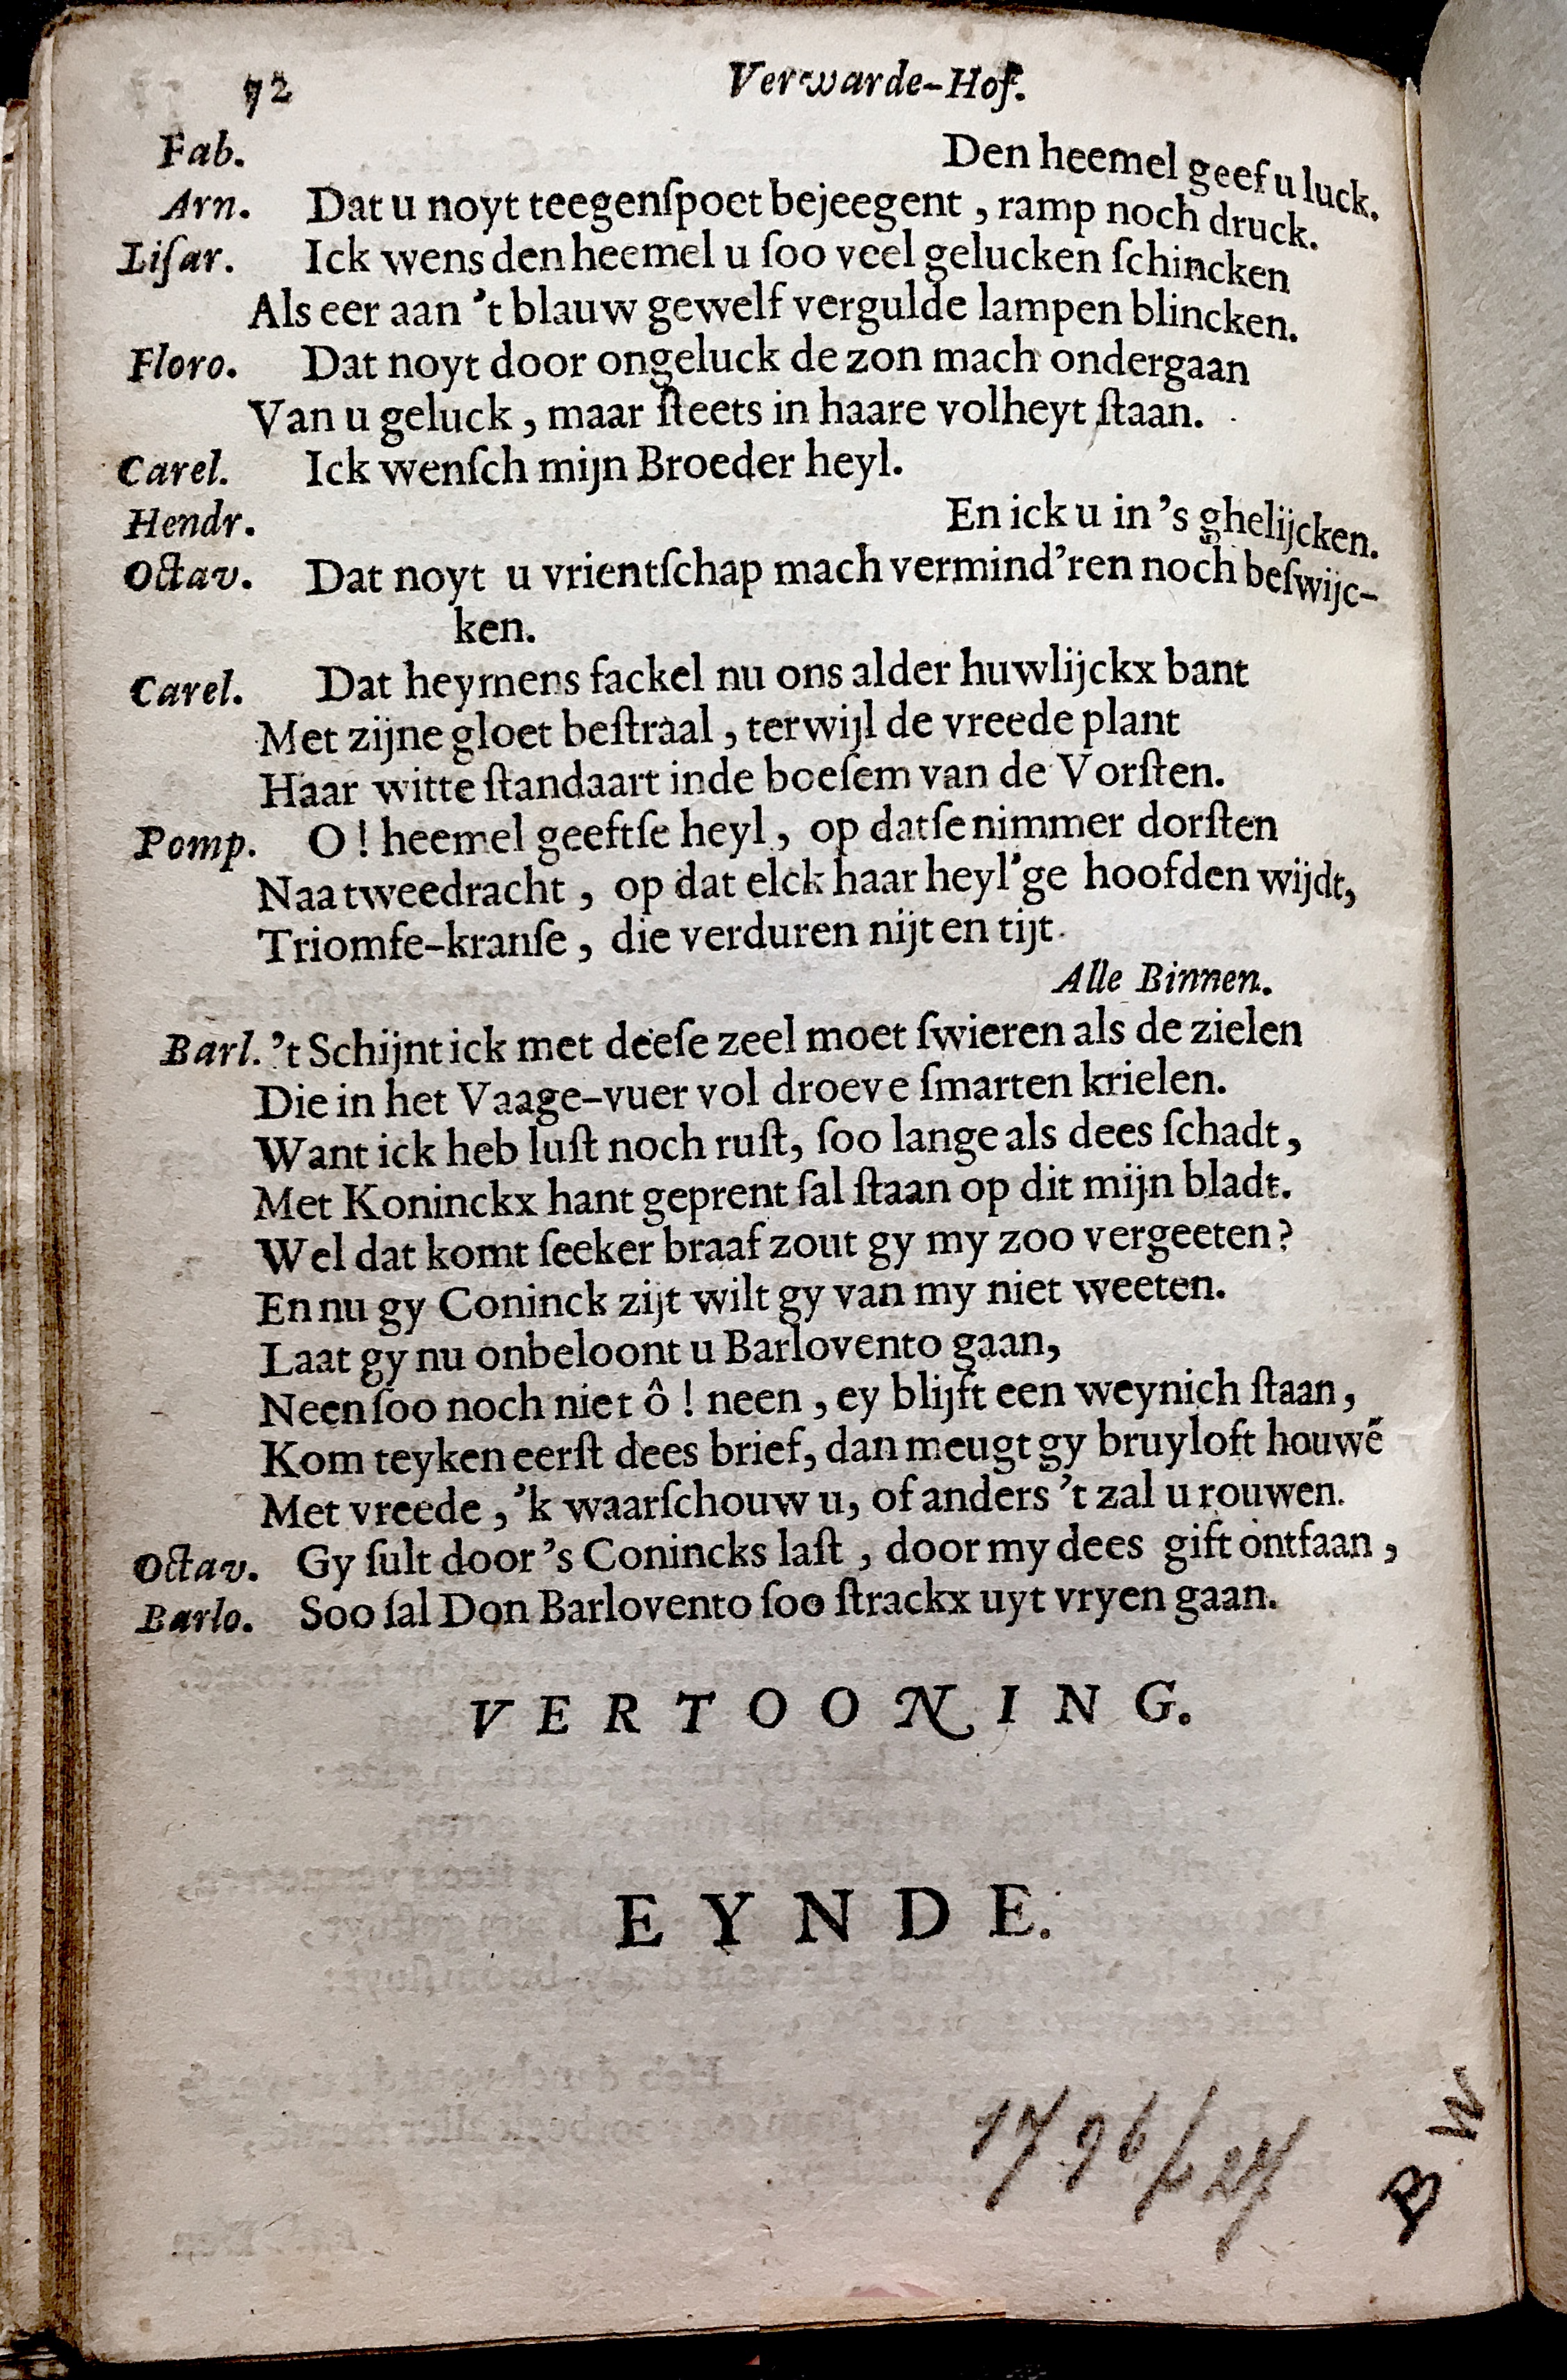 72 Verwarde-Hof.
Fab. Den heemel geef u luck.
Arn. Dat u noyt teegenſpoet bejeegent, ramp noch druck.
Liſar. Ick wens den heemel u ſoo veel gelucken ſchincken
Als eer aan 't blauw gewelf vergulde lampen blincken.
Floro. Dat noyt door ongeluck de zon mach ondergaan
Van u geluck, maar ſteets in haare volheyt ſtaan.
Carel. Ick wenſch mijn Broeder heyl.
Hendr. En ick u in 's ghelijcken.
Octav. Dat noyt u vrientſchap mach vermind'ren noch beſwijc-
ken.
Carel. Dat heymens fackel nu ons alder huwlijckx bant
Met zijne gloet beſtraal, terwijl de vreede plant
Haar witte ſtandaart inde boeſem van de Vorſten.
Pomp. O! heemel geeftſe heyl, op datſe nimmer dorſten
Naa tweedracht, op dat elck haar heyl'ge hoofden wijdt,
Triomfe-kranſe, die verduren nijt en tijt.
Alle Binnen.
Barl. 't Schijnt ick met deeſe zeel moet ſwieren als de zielen
Die in het Vaage-vuer vol droeve ſmarten krielen.
Want ick heb luſt noch ruſt, ſoo lange als dees ſchadt,
Met Koninckx hant geprent ſal ſtaan op dit mijn bladt.
Wel dat komt ſeeker braaf zout gy my zoo vergeeten?
En nu gy Coninck zijt wilt gy van my niet weeten.
Laat gy nu onbeloont u Barlovento gaan,
Neen ſoo noch niet ô! neen, ey blijft een weynich ſtaan,
Kom teyken eerſt dees brief, dan meugt gy bruyloft houwẽ
Met vreede, 'k waarſchouw u, of anders 't zal u rouwen.
Octav. Gy ſult door 's Conincks laſt, door my dees gift ontfaan,
Barlo. Soo ſal Don Barlovento ſoo ſtrackx uyt vryen gaan.
VERTOONING.
EYNDE.
B W